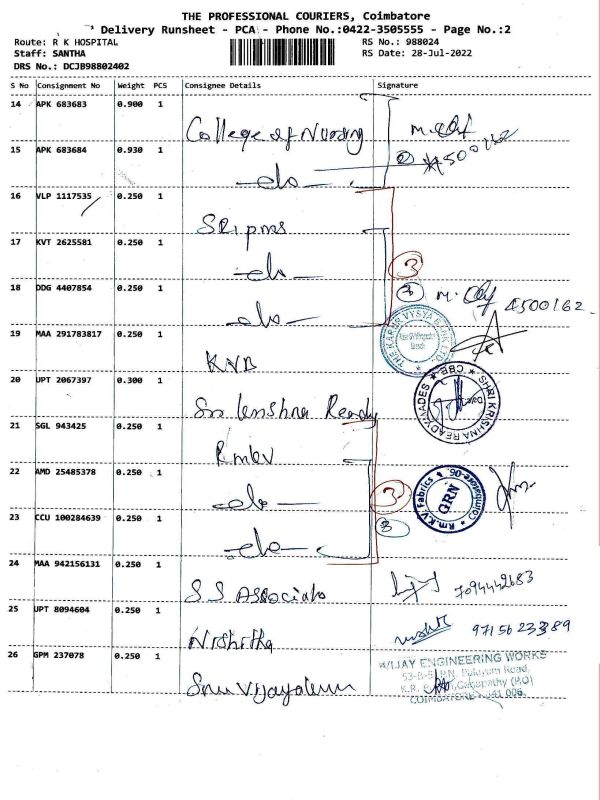 THE PROFESSIONAL COURIERS, Coimbatore
Delivery Runsheet - PCA - Phone No.:0422-3505555 - Page No.:2
Route: R K HOSPITAL RS No.: 988024
Staff: SANTHA RS Date: 28-Jul-2022
DRS No.: DCJB98802402
S No Consignment No Weight PCS Consignee Details Signature
14 APK 683683 0.900 1
College of Nursing
15 APK 683684 0.930 1
② 4500162
-do-
16 VLP 1117535 0.250 1
SRIPMS
17 KVT 2625581 0.250 1
-do- 3
18 DDG 4407854 0.250 1
-do- 3 4500162
19 MAA 291783817 0.250 1
THE KARUR VYSYA BANK LTD.
KVB
20 UPT 2067397 0.300 1
SHRI KRISHNA READYMADES CBE
Sri Krishna Ready
21 SGL 943425 0.250 1
Rmkv
22 AMD 25485378 0.250 1
Rm. K.V. Fabrics Coimbatore-06. GRN
-do- 3
23 CCU 100284639 0.250 1
3
-do-
24 MAA 942156131 0.250 1
S S Associats 7094442683
25 UPT 8094604 0.250 1
Nishitha 9715623389
26 GPM 237078 0.250 1
VIJAY ENGINEERING WORKS
Road,
Ganapathy (P.O)
COIMBATORE - 641 006.